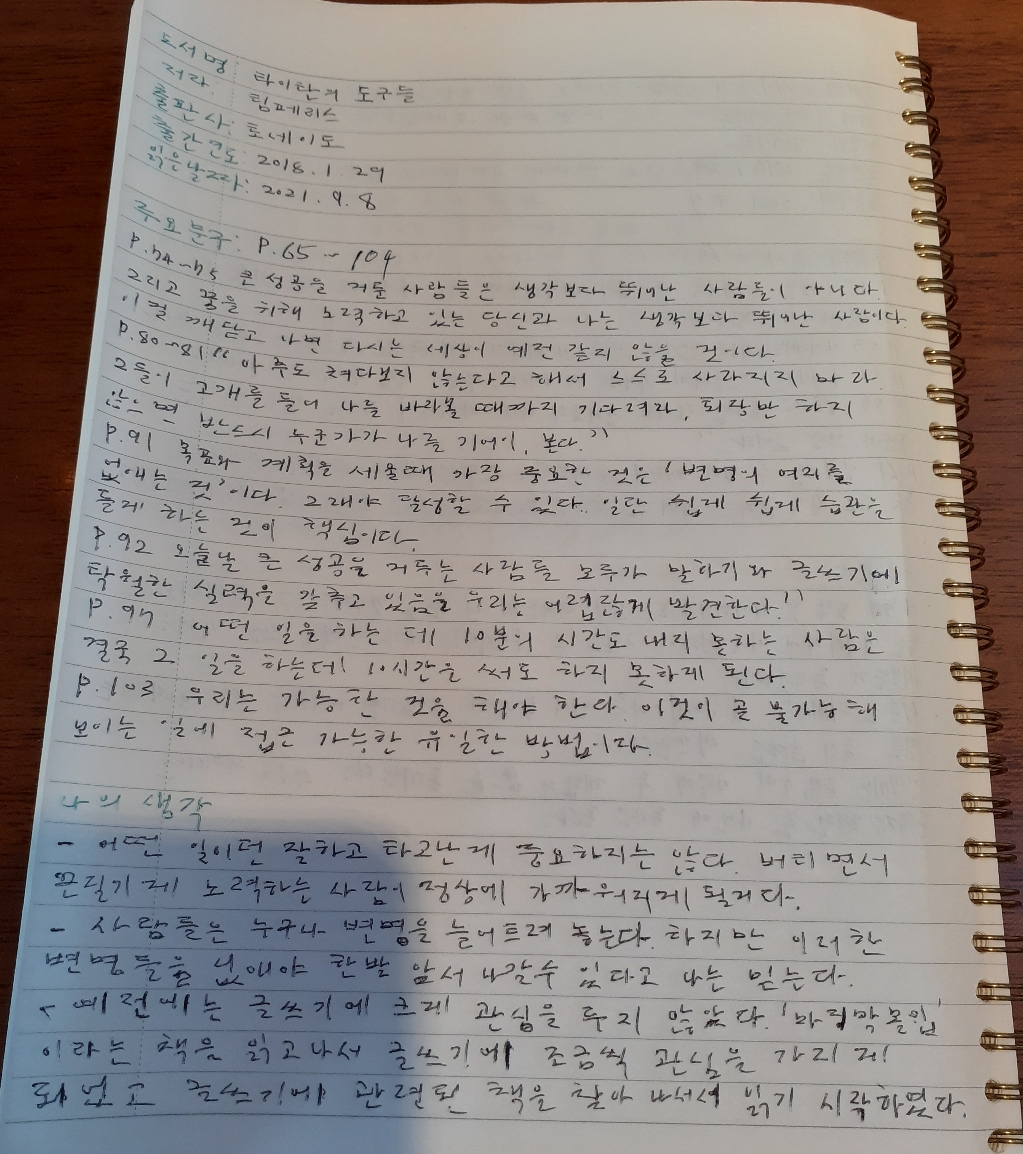 도서명: 타이탄의 도구들
저자: 팀페리스
출판사: 토네이도
출간연도: 2018. 1. 29
읽은날짜: 2021. 9. 8
주요문구: P.65~104
P.74~75 큰 성공을 거둔 사람들은 생각보다 뛰어난 사람들이 아니다.
그리고 꿈을 위해 노력하고 있는 당신과 나는 생각보다 뛰어난 사람이다.
이걸 깨닫고 나면 다시는 세상이 예전 같지 않을 것이다.
P.80~81 "아무도 쳐다보지 않는다고 해서 스스로 사라지지 마라.
그들이 고개를 들어 나를 바라볼 때까지 기다려라, 퇴장만 하지
않으면 반드시 누군가가 나를 기어이, 본다."
P.91 목표와 계획을 세울때 가장 중요한 것은 '변명의 여지를
없애는 것'이다. 그래야 달성할 수 있다. 일단 쉽게 쉽게 습관을
들게 하는 것이 핵심이다.
P.92 오늘날 큰 성공을 거두는 사람들 모두가 말하기와 글쓰기에
탁월한 실력을 갖추고 있음을 우리는 어렵잖게 발견한다."
P.97 어떤 일을 하는 데 10분의 시간도 내지 못하는 사람은
결국 그 일을 하는데 10시간을 써도 하지 못하게 된다.
P.103 우리는 가능한 것을 해야 한다. 이것이 곧 불가능해
보이는 일에 접근 가능한 유일한 방법이다.
나의 생각
- 어떤 일이던 잘하고 타고난게 중요하지는 않다. 버티면서
끈질기게 노력하는 사람이 정상에 가까워지게 될거다.
- 사람들은 누구나 변명을 늘어트려 놓는다. 하지만 이러한
변명들을 없애야 한발 앞서 나갈수 있다고 나는 믿는다.
- 예전에는 글쓰기에 크게 관심을 두지 않았다. '마지막몰입'
이라는 책을 읽고나서 글쓰기에 조금씩 관심을 가지게
되었고 글쓰기에 관련된 책을 찾아 나서서 읽기 시작하였다.